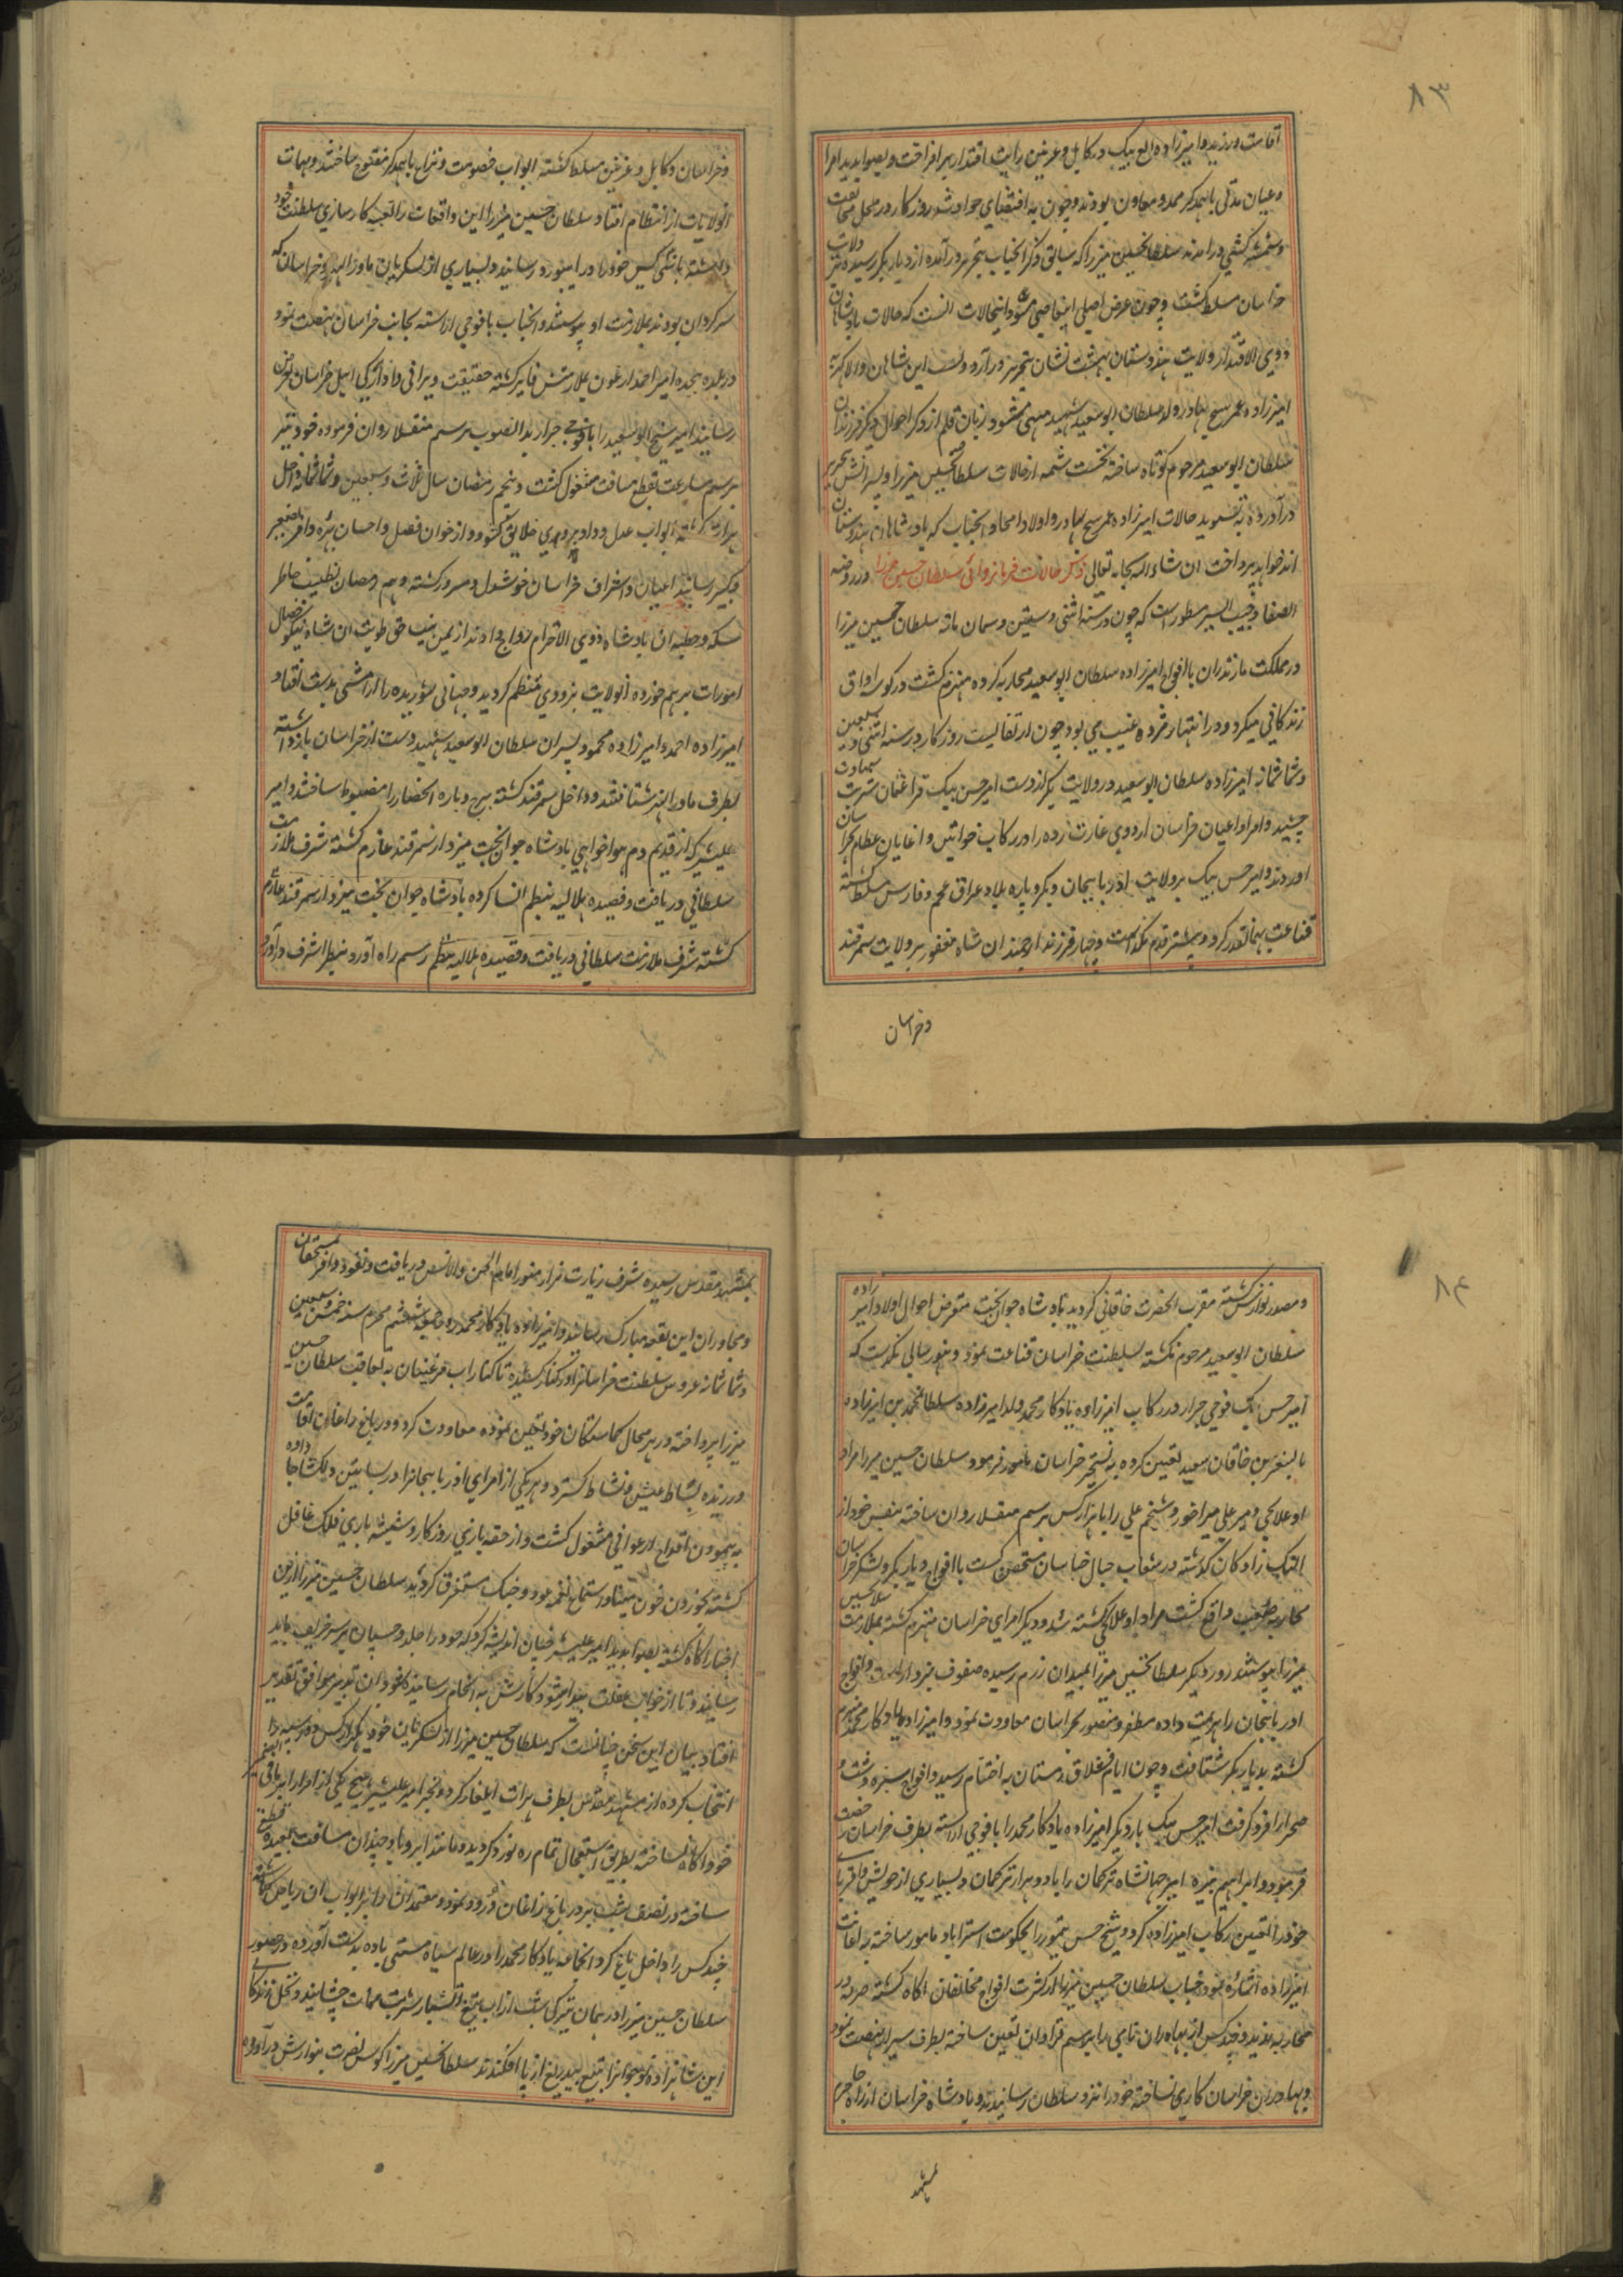 ۸۳
اقامت ورزید و امیرزاده الغ بیک در کابل و غزنین رایت اقتدار برافراخت و بصوابدید امرا
وعیان مدتی باهمدکر ممد و معاون بودند و چون به اقتضای حوادث روزکار در محل مخالفت
و سرکشی درامدند سلطان حسین میرزا که سابق ذکر انجناب بتحریر درآمده از دیار بکر رسیده بر ولایت
خراسان مسلط کشت و چون عرض اصلی از حالات انست که حالات بادشاهان
ذوی الاقتدار ولایت هندوستان بهشت نشان بتحریر درآرد و نسب این شاهان والاکهر به
امیرزاده عمر شیخ بهادر ولد سلطان ابوسعید شهید منتهی میشود زبان قلم از ذکر احوال دیکر فرزندان
سلطان ابوسعید مرحوم کوتاه ساخته نخست شمه از حالات سلطان حسین میرزا و پسرانش بتحریر
درآورده به تسوید حالات امیرزاده عمر شیخ بهادر و اولاد امجاد انجناب که بادشاهان هندوستان
اند خواهد پرداخت ان شاء الله سبحانه تعالی ذکر حالات فرمانروائی سلطان حسین میرزا در روضه
الصفا و حبیب السیر مسطور است که چون در سنه اثنی و ستین و ثمان مائه سلطان حسین میرزا
در مملکت مازندران با افواج امیرزاده سلطان ابوسعید محاربه کرده منهزم کشت در کوه و اواق
زندکانی میکرد و در انتهار مژده غیبی می بود چون از تقالیب روزکار در سنه اثنی و سبعین
و ثمانمائه امیرزاده سلطان ابوسعید در ولایت بکر از دست امیر حسن بیک قراعثمان شربت شهادت
چشید و امرا و اعیان خراسان اردوی غارت زده را در رکاب خواتین و اغایان عظام بخراسان
اوردند و امیر حسن بیک بر ولایت اذربایجان و بکر و پاره بلاد عراق عجم و فارس مسلط کشته
قناعت بهمانقدر کرد و پیشتر قدم نکذاشت و چهار فرزند ارجمند ان شاه مغفور بر ولایت سمرقند
وخراسان
وخراسان و کابل و غزنین مسلط کشته ابواب خصومت و نزاع باهمدکر مفتوح ساختند و مهمات
انولایات از انتظام افتاد سلطان حسین میرزا این واقعات را تعبیه کارسازی سلطنت خود
دانسته باندکی کس خود را در ابیورد رسانید و بسیاری از لشکریان ماوراالنهر و خراسان که
سرکردان بودند بملازمت او پیوستند و انجناب با فوجی اراسته بجانب خراسان نهضت نمود
در بلده بجده امیر احمد ارغون بملازمتش فایز کشته حقیقت ویرانی و اوارکی اهل خراسان بعرض
رسانید امیر شیخ ابوسعید را با فوجی جرار بدانصوب برسم منقلا روان فرموده خود نیز
برسم سارعت بقطع مسافت مشغول کشت و پنجم رمضان سال ثلاث و سبعین و ثمانمائه داخل
هرات کشته ابواب عدل و داد بر روی خلایق کشود و از خوان فضل و احسان بهره وافر بصغیر
و کبیر رسانید اعیان و اشراف خراسان خوشدل و مسرور کشته و هم رمضان بطیب خاطر
سکه و خطبه ان بادشاه ذوی الاحترام رواج دادند از یمن نیت حق طویت ان شاه نیکوخصال
امورات برهم خورده انولایت بزودی منتظم کردید و جهانی شوریده را ارامشی بدست افتاد
امیرزاده احمد و امیرزاده محمود پسران سلطان ابوسعید شهید دست از خراسان بازداشته
بطرف ماوراالنهر شتافتند و داخل سمرقند کشته برج و باره انحصار را مضبوط ساختند و امیر
علیشیر که از قدیم دم هواخواهی بادشاه جوانبخت میزد از سمرقند عازم کشته شرف ملازمت
سلطانی دریافت و قصیده هلالیه بنظم انشا کرده بادشاه جوان بخت میزد از سمرقند عازم
کشته شرف ملازمت سلطانی دریافت و قصیده هلالیه منظم رسم راه اورد بنظر اشرف درآورد
۸۴
و مصدر نوازش کشته مقرب الحضرت خاقانی کردید بادشاه جوانبخت متعرض احوال اولاد امیرزاده
سلطان ابوسعید مرحوم نکشته بسلطنت خراسان قناعت نمود و هنوز سالی نکذشت که
امیر حسن بیک فوجی جرار در رکاب امیرزاده یادکار محمد ولد امیرزاده سلطان محمد بن امیرزاده
بایسنغر بن خاقان سعید تعیین کرده به تسخیر خراسان مامور فرمود و سلطان حسین میرزا مراد
اوغلانجی و میر علی میراخور و شیخم علی را با هزار کس برسم منقلا روان ساخته بنفس خود از
النک رادکان کذشته در شعاب جبال خراسان متحصن کشت با افواج دیار بکر و لشکر خراسان
محاربه صعب واقع کشت مراد اوغلانجی کشته شد و دیکر امرای خراسان منهزم کشته بملازمت سلطان حسین
میرزا پیوستند روز دیکر سلطان حسین میرزا بمیدان رزم رسیده صفوف نبرد اراست و افواج
اذربایجان را هزیمت داده مظفر و منصور بخراسان معاودت نمود و امیرزاده یادکار محمد منهزم
کشته بدیار بکر شتافت و چون ایام قشلاق زمستان به اختتام رسید و افواج سبزه دشت و
صحرا را فرو کرفت امیر حسن بیک بار دیکر امیرزاده یادکار محمد را با فوجی اراسته بطرف خراسان رخصت
فرمود و ابراهیم نبیره امیر جهانشاه ترکمان را با دو هزار ترکمان و بسیاری از خویش و اقربای
خود را تعیین رکاب امیرزاده کرد و شیخ حسن تیمور را بحکومت استراباد مامور ساخته به اعانت
امیرزاده اشاره نمود جناب سلطان حسین میرزا از کثرت افواج مخالفان اکاه کشته صرفه در
محاربه ندید و چند کس از بهادران نامی را برسم قراولی تعیین ساخته بطرف سیراب نهضت نمود
و بهادران خراسان کاری نساخته خود را نزد سلطان رسانیدند و بادشاه خراسان از راه جاجرم
بمشهد
بمشهد مقدس رسیده شرف زیارت مزار منور امام الجن والانس دریافت و نقود وافر بمستحقان
و مجاوران این بقعه مبارک رسانید و امیرزاده یادکار محمد روز جمعه ششم محرم سنه خمس و سبعین
و ثمانمائه عروس سلطنت خراسان را در کنار کشیده تا کنار اب مرغینان به تعاقب سلطان حسین
میرزا پرداخته در هر محال کماشتکان خود تعیین نموده معاودت کرد و در باغ زاغان اقامت
ورزیده بساط عیش و نشاط کسترد و هر یکی از امرای اذربایجان را در بساتین دلکشا جا داده
به پیمودن اقداح ارغوانی مشغول کشت و از حقه بازی روزکار و شیشه بازی فلک غافل
کشته بخوردن خون مینا و استماع نغمه عود و چنک مستغرق کردید سلطان حسین میرزا ازین
اخبار اکاه کشته بصوابدید امیر علیشیر چنان اندیشه کرد که خود را جلد و چسپان بر سر حریف باید
رسانید و تا از خواب غفلت بیدار شود کارش به انجام رسانیده شود ان تدبیر موافق تقدیر
افتاد بیان این سخن چنانست که سلطان حسین میرزا از لشکریان خود یکهزار کس دو مرتبه را
انتخاب کرده از مشهد مقدس بطرف هرات ایلغار کرد و بجز امیر علیشیر هیچ یکی از امرا را بر مافی الضمیر
خود اکاه نساخته بطریق استعجال تمام ره نورد کردید و مانند ابر و باد چندان مسافت بعیده قطع
ساخته در نصف شب بر در باغ زاغان ورود نمود و معتمدان
چند کس را داخل باغ کرد انجماعه یادکار محمد را در عالم سیاه مستی باده بدست آورده در حضور
سلطان حسین میرزا در همان تیرکی شب از اب تیغ اتشبار شربت ممات چشانیدند و نخل زندکانی
این شاهزاده نوجوان را بتیغ بیدریغ از پا افکندند سلطان حسین میرزا کوس نصرت بنوازش درآورده